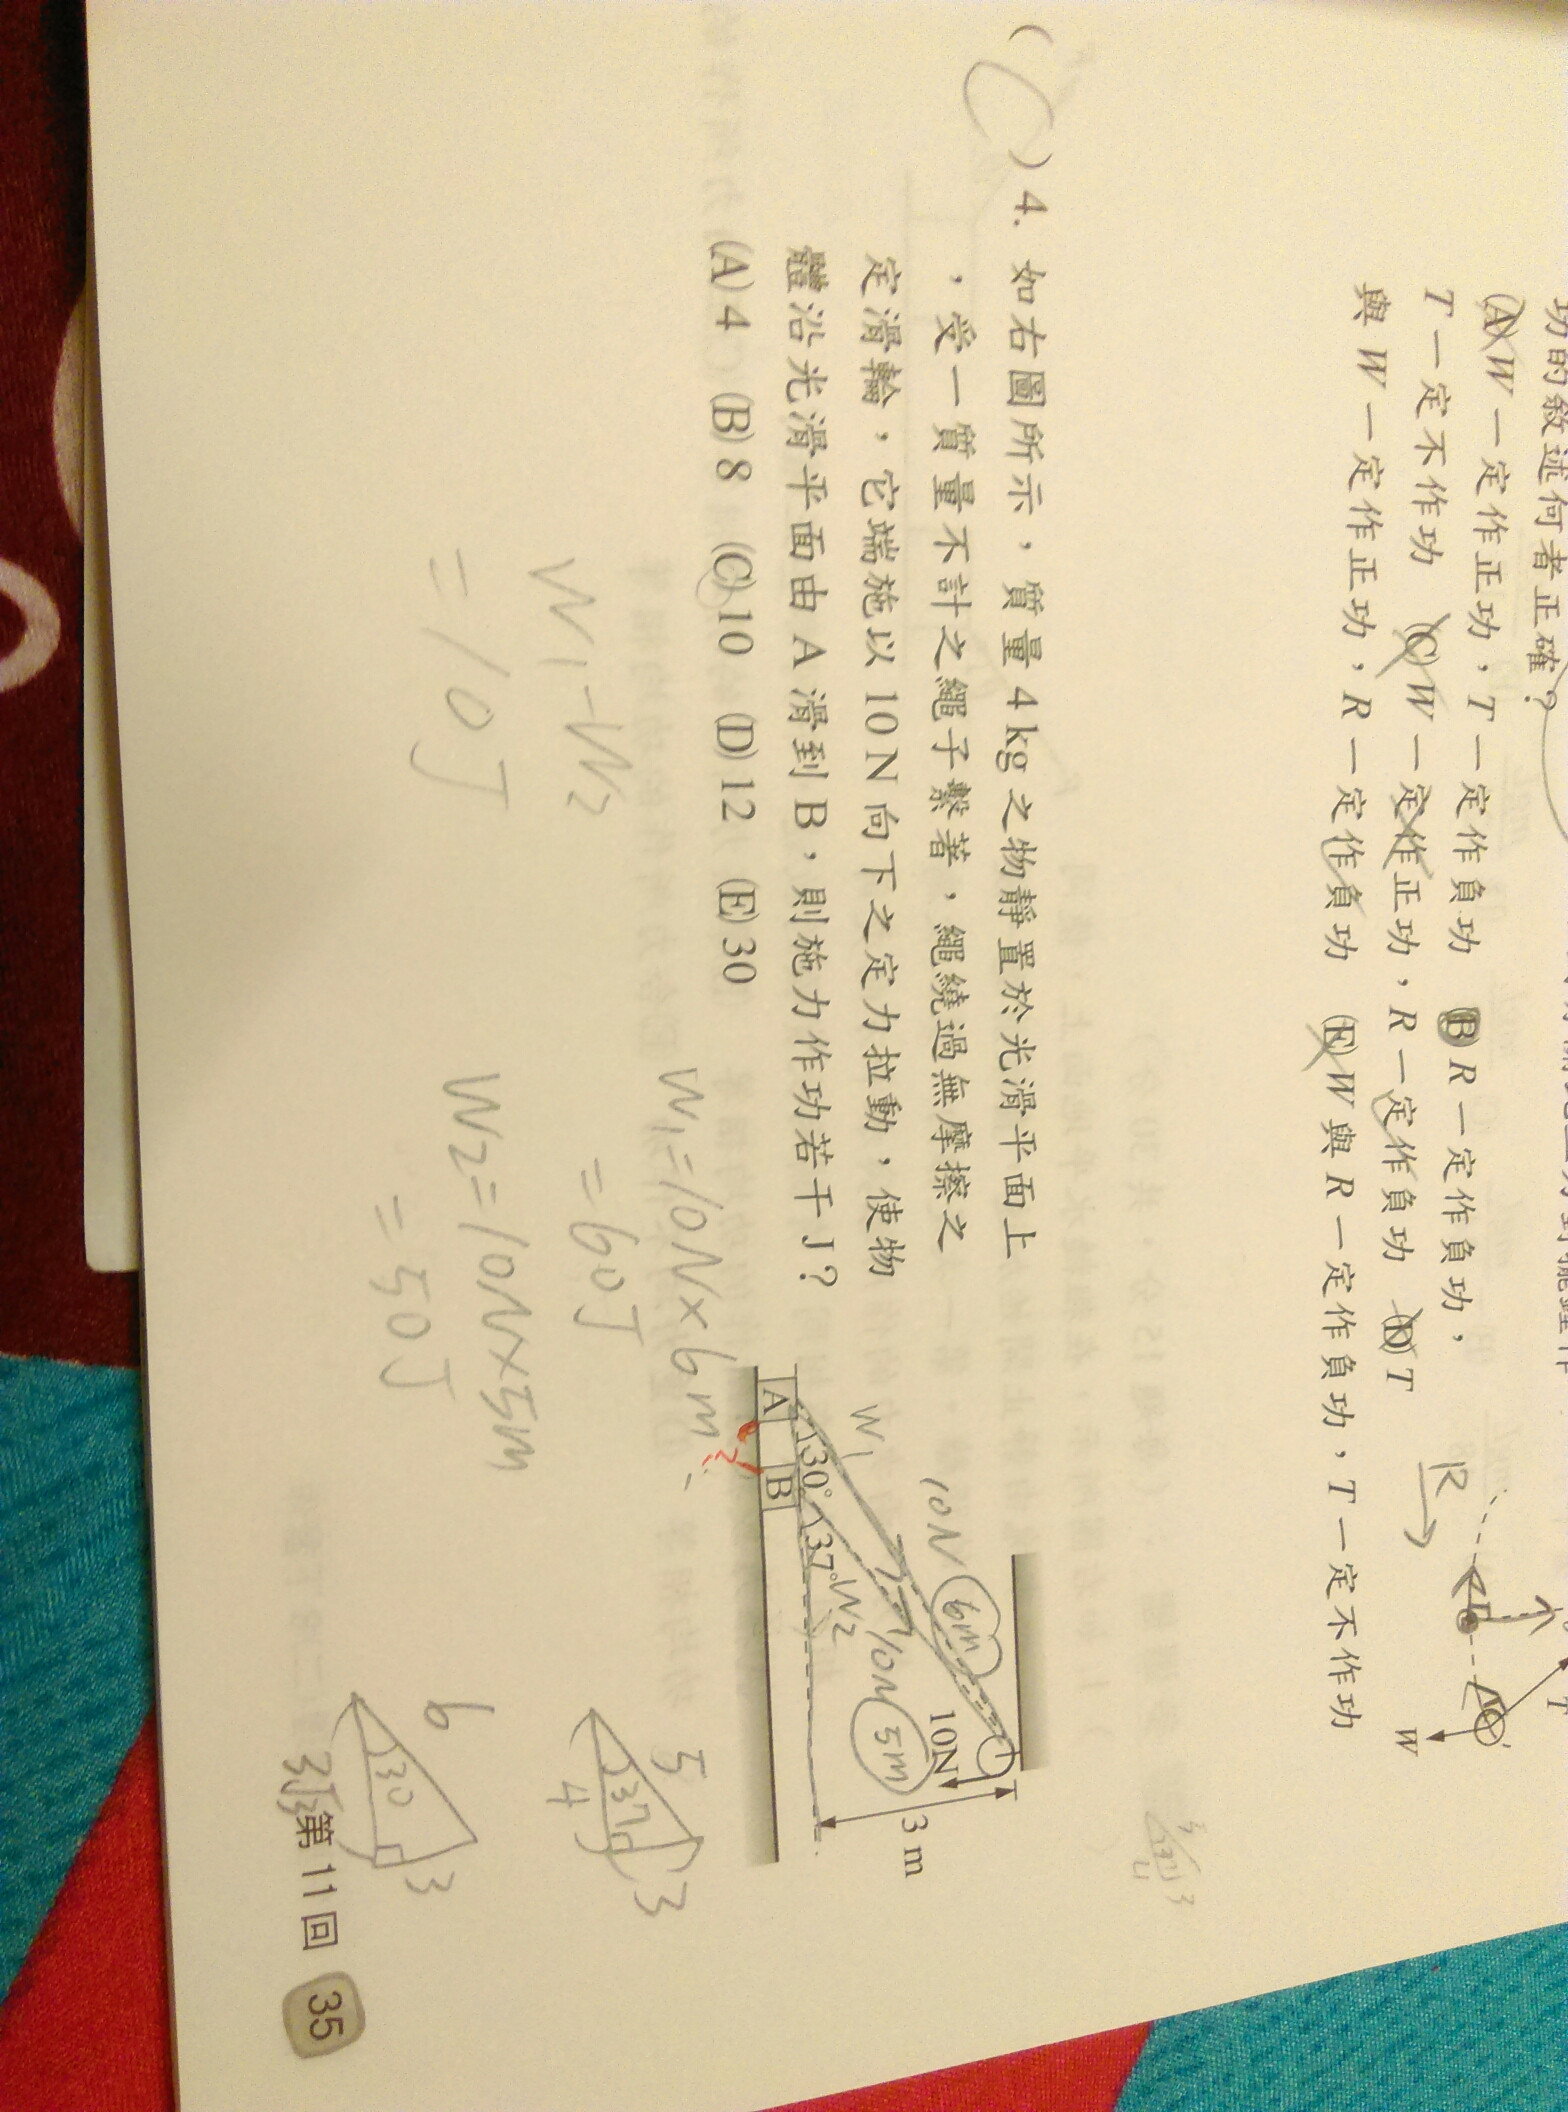 功的敘述何者正確?
(A) W 一定作正功,T 一定作負功 (B) R 一定作負功,
T 一定不作功 (C) W 一定作正功,R 一定作負功 (D) T
與 W 一定作正功,R 一定作負功 (E) W 與 R 一定作負功,T 一定不作功
R
T
W
( C ) 4. 如右圖所示,質量 4 kg 之物靜置於光滑平面上
,受一質量不計之繩子繫著,繩繞過無摩擦之
定滑輪,它端施以 10 N 向下之定力拉動,使物
體沿光滑平面由 A 滑到 B,則施力作功若干 J?
(A) 4 (B) 8 (C) 10 (D) 12 (E) 30
10N 6m
W1
10N
3 m
10N 5m
W2
30° 37°
A B
W1=10N×6m
=60J
W2=10N×5m
=50J
W1-W2
=10J
5 3
37
4
6 3
30
3√3
第 11 回 35